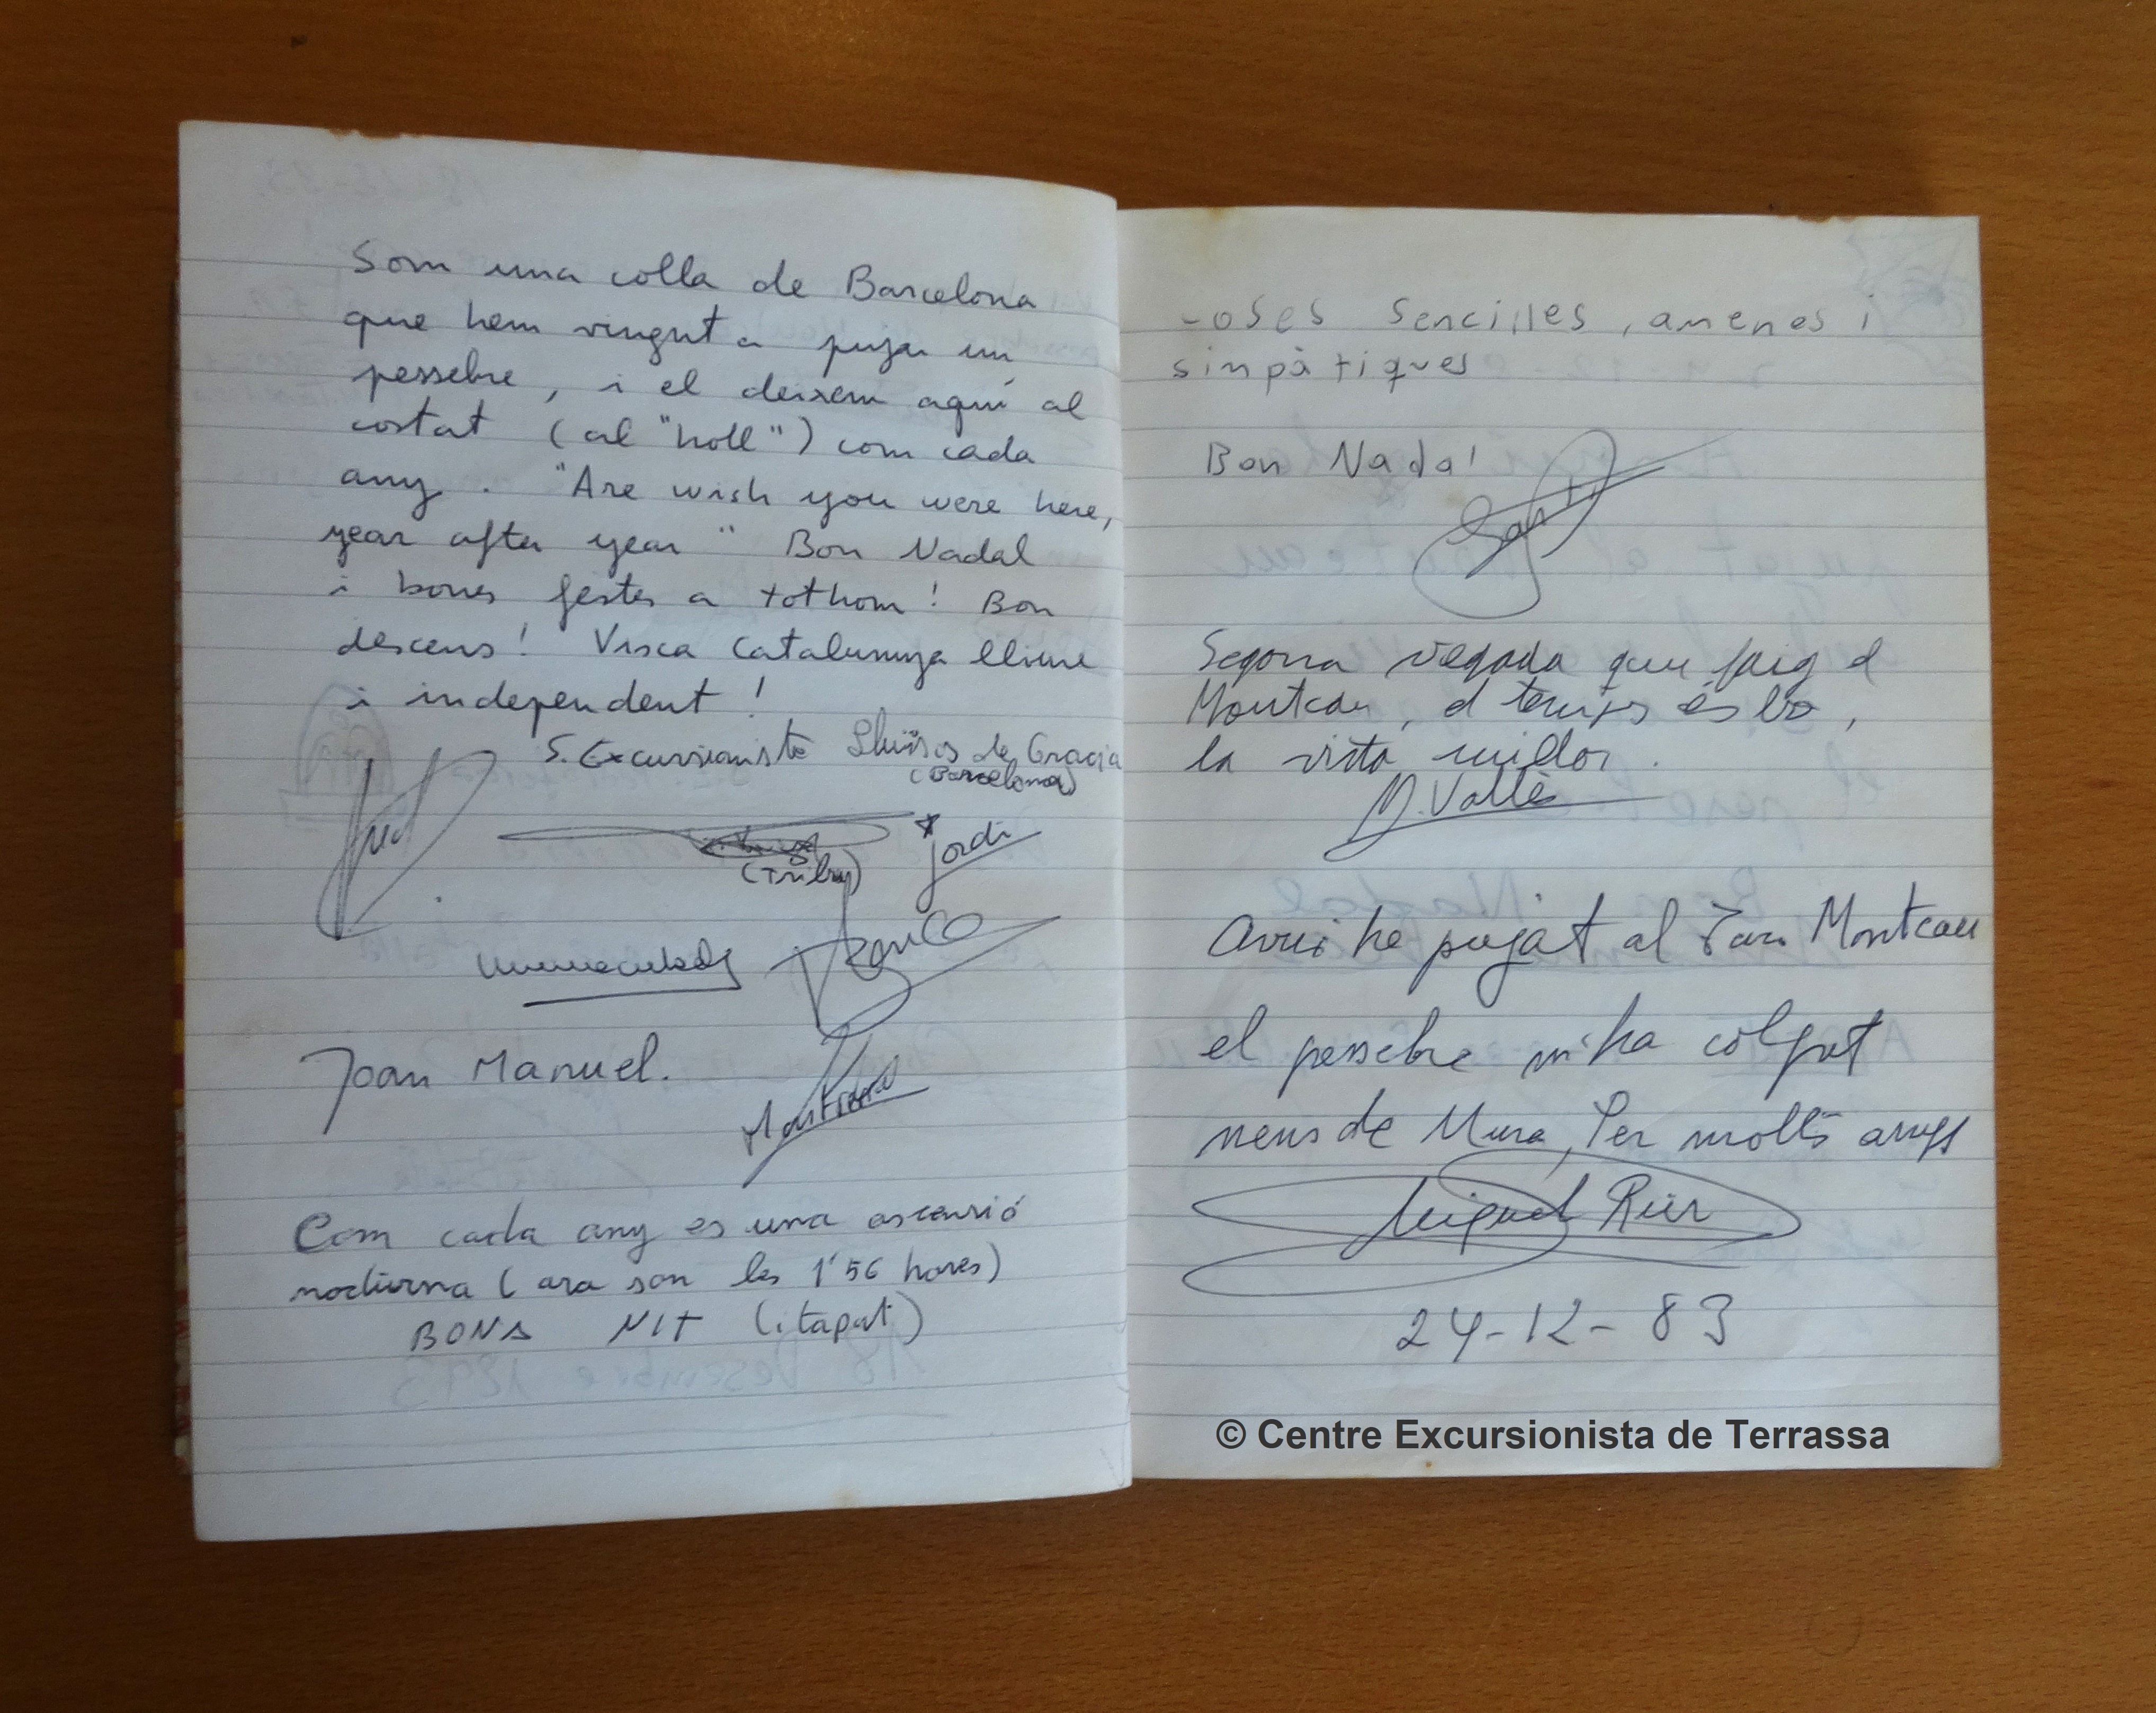 Som una colla de Barcelona
que hem vingut a pujar un
pessebre, i el deixem aquí al
costat (al "holl") com cada
any. "Are wish you were here,
year after year" Bon Nadal
i bones festes a tothom! Bon
descens! Visca Catalunya lliure
i independent!
S. Excursionista Lluïsos de Gracia
(Barcelona)
(Trilby)
Jordi
Immaculada
Joan Manuel.
Com cada any es una ascensió
nocturna (ara son les 1'56 hores)
BONA NIT (i tapat)
-oses sencilles, amenes i
sinpàtiques
Bon Nadal
Segona vegada que faig el
Montcau, el temps és bo,
la vista millor.
M. Vallès
Avui he pujat al Montcau
el pessebre m'ha colpit
nens de Mura, Per molts anys
Miquel
24-12-83
© Centre Excursionista de Terrassa